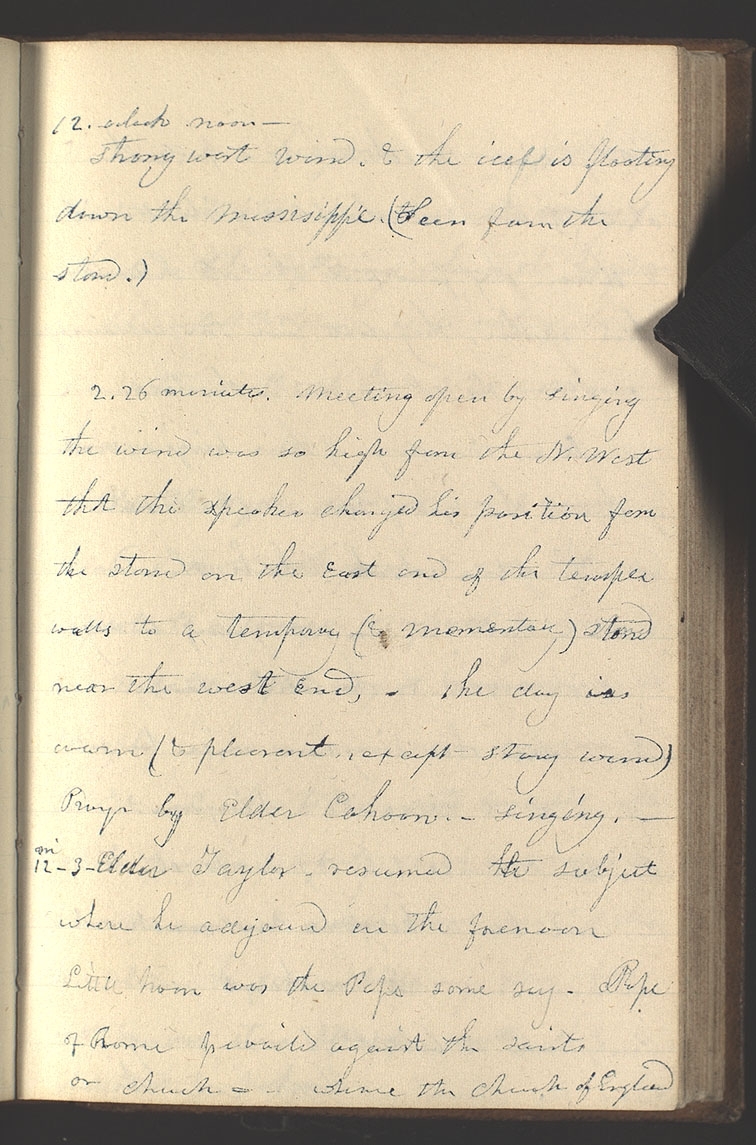 12. oclock noon—
Strong west wind. & the ice is floating
down the Mississippi. (Seen from the
stand.)
2.26 minutes. Meeting open by singing
the wind was so high from the N. West
that the speaker changed his position from
the stand on the East end of the temple
walls to a temporary (& momentary) stand
near the west end, - The day was
warm (& pleasant, except strong wind)
Prayr by Elder Cahoon. - singing. —
mi
12 - 3 - Elder Taylor - resumed the subject
where he adjourd in the forenoon
Little horn was the Pope some say - Pope
of Rome prevaild against the saints
or church = - where the church of England